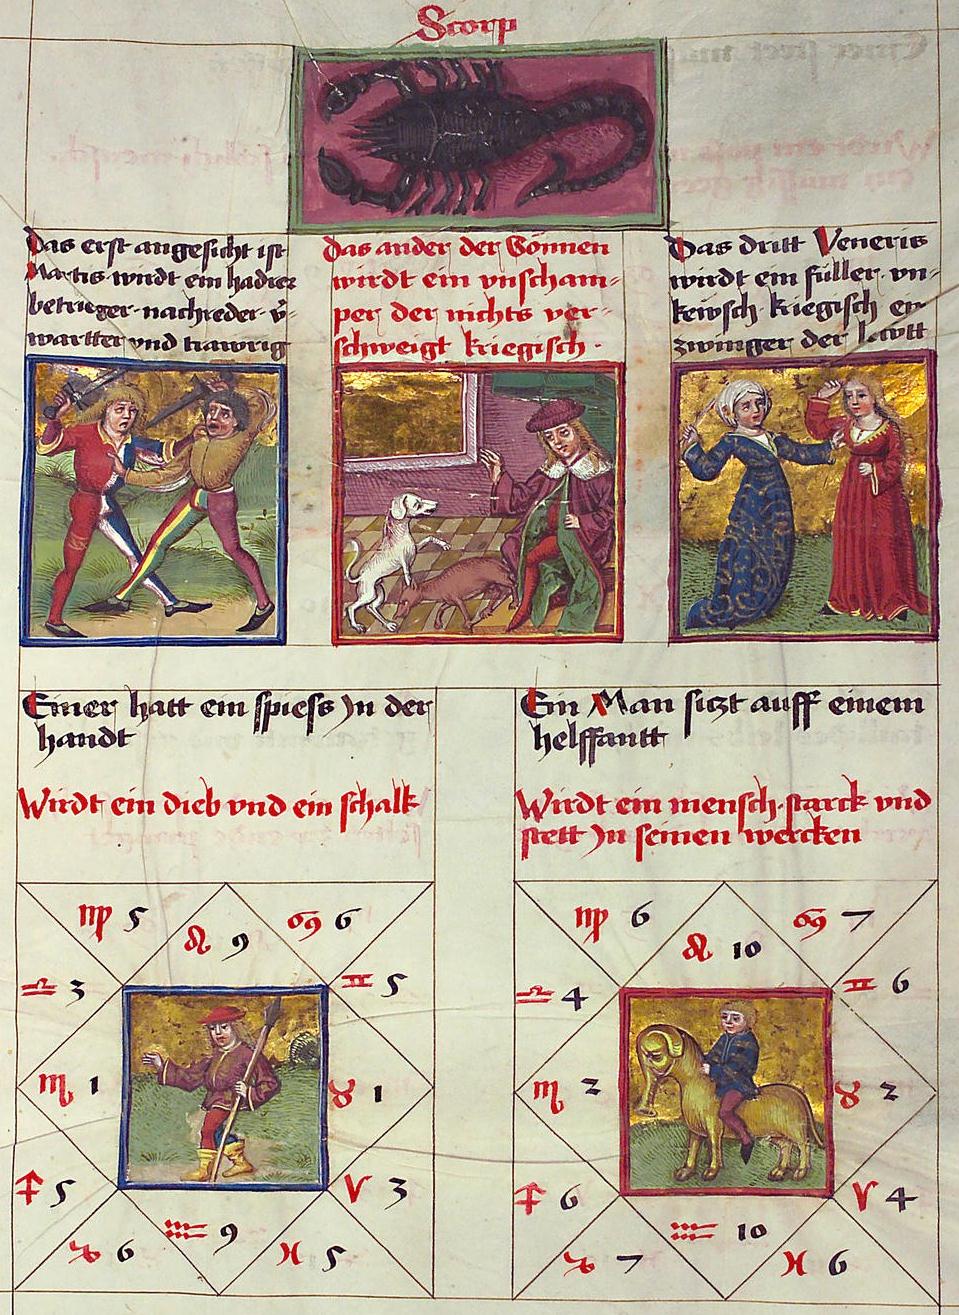 Scorp
Das erst angesicht ist
Martis wirdt ein hadrer
betrieger · nachreder · v̈-
wartter vnd trawrig
das ander der Sonnen
wirdt ein vnscham-
per der nichts ver-
schweigt kriegisch ·
Das dritt Veneris
wirdt ein füller · vn-
kewsch · kriegisch ein
zwinger der lewtt
Einer hatt ein spiess Jn der
handt
Wirdt ein dieb vnd ein schalk
Ein Man siczt auff einem
helffantt
Wirdt ein mensch · starck vnd
stett Jn seinen wercken
♍ 5
♌ 9
♋ 6
♎ 3
♊ 5
♏ 1
♉ 1
♐ 5
♈ 3
♑ 6
♒ 9
♓ 5
♍ 6
♌ 10
♋ 7
♎ 4
♊ 6
♏ 2
♉ 2
♐ 6
♈ 4
♑ 7
♒ 10
♓ 6